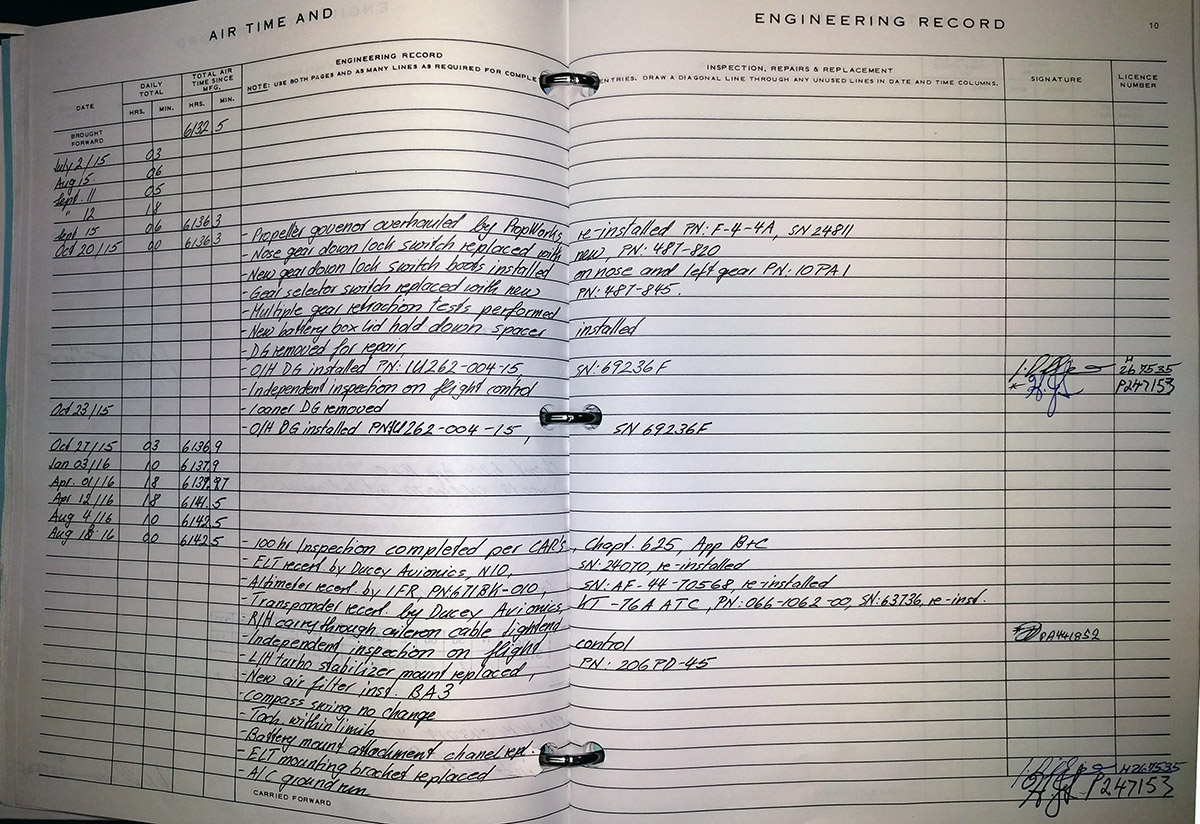 AIR TIME AND
ENGINEERING RECORD 10
DATE
DAILY TOTAL
HRS. MIN.
TOTAL AIR TIME SINCE MFG.
HRS. MIN.
ENGINEERING RECORD
NOTE: USE BOTH PAGES AND AS MANY LINES AS REQUIRED FOR COMPLE
INSPECTION, REPAIRS & REPLACEMENT
ENTRIES. DRAW A DIAGONAL LINE THROUGH ANY UNUSED LINES IN DATE AND TIME COLUMNS.
SIGNATURE
LICENCE NUMBER
BROUGHT FORWARD 6132 5
July 2/15 03
Aug 15 06
Sept. 11 05
" 12 18
Sept 15 06 6136 3 - Propeller govenor overhauled by PropWorks, re-installed PN: F-4-4A, SN 24811
Oct 20/15 00 6136 3 - Nose gear down lock switch replaced with new, PN: 487-820
- New gear down lock switch boots installed on nose and left gear PN: 10PA1
- Gear selector switch replaced with new PN: 487-845.
- Multiple gear retraction tests performed
- New battery box lid hold down spacer installed
- DG removed for repair,
- O/H DG installed PN: 1U262-004-15, SN: 69236F M267535
- Independent inspection on flight control P247153
Oct 23/15 - loaner DG removed
- O/H DG installed PN 1U262-004-15, SN 69236F
Oct 27/15 03 6136 9
Jan 03/16 10 6137 9
Apr. 01/16 18 6139
Apr 12/16 18 6141 5
Aug 4/16 10 6142 5
Aug 18 16 00 6142 5 - 100hr Inspection completed per CARS, Chapt. 625, App B+C
- ELT recert by Ducey Avionics, N10, SN: 24070, re-installed
- Altimeter recert. by IFR, PN: 671BK-010, SN: AF-44-T0568, re-installed
- Transponder recert. by Ducey Avionics, KT-76A ATC, PN: 066-1062-00, SN: 63736, re-inst.
- R/H carry through aileron cable tightend
- Independent inspection on flight control PA441852
- L/H turbo stabilizer mount replaced, PN: 206PD-45
- New air filter inst. BA3
- Compass swing no change
- Tach. within limits
- Battery mount attachment chanel repl.
- ELT mounting bracket replaced M267535
- A/C ground run P247153
CARRIED FORWARD